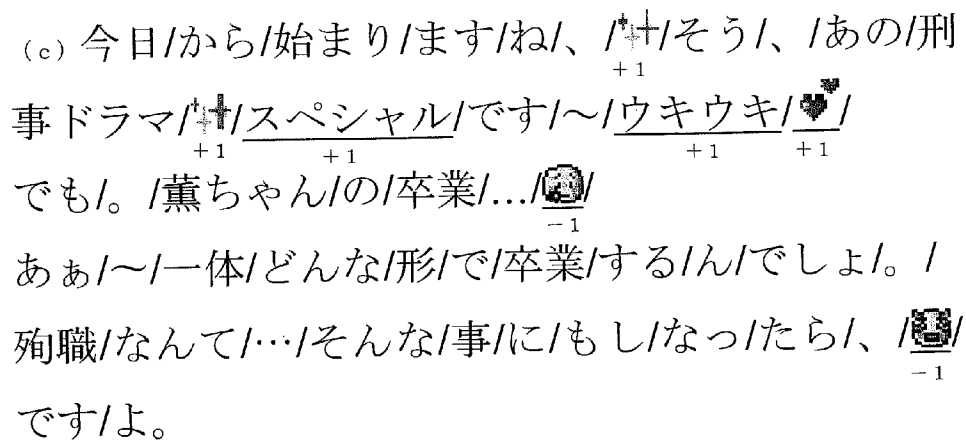 (c) 今日/から/始まり/ます/ね/、/✨/そう/、/あの/刑
+1
事ドラマ/✨/スペシャル/です/～/ウキウキ/💕/
+1 +1 +1 +1
でも/。/薫ちゃん/の/卒業/.../
−1
あぁ/～/一体/どんな/形/で/卒業/する/ん/でしょ/。/
殉職/なんて/…/そんな/事/に/もし/なっ/たら/、/
−1
です/よ。